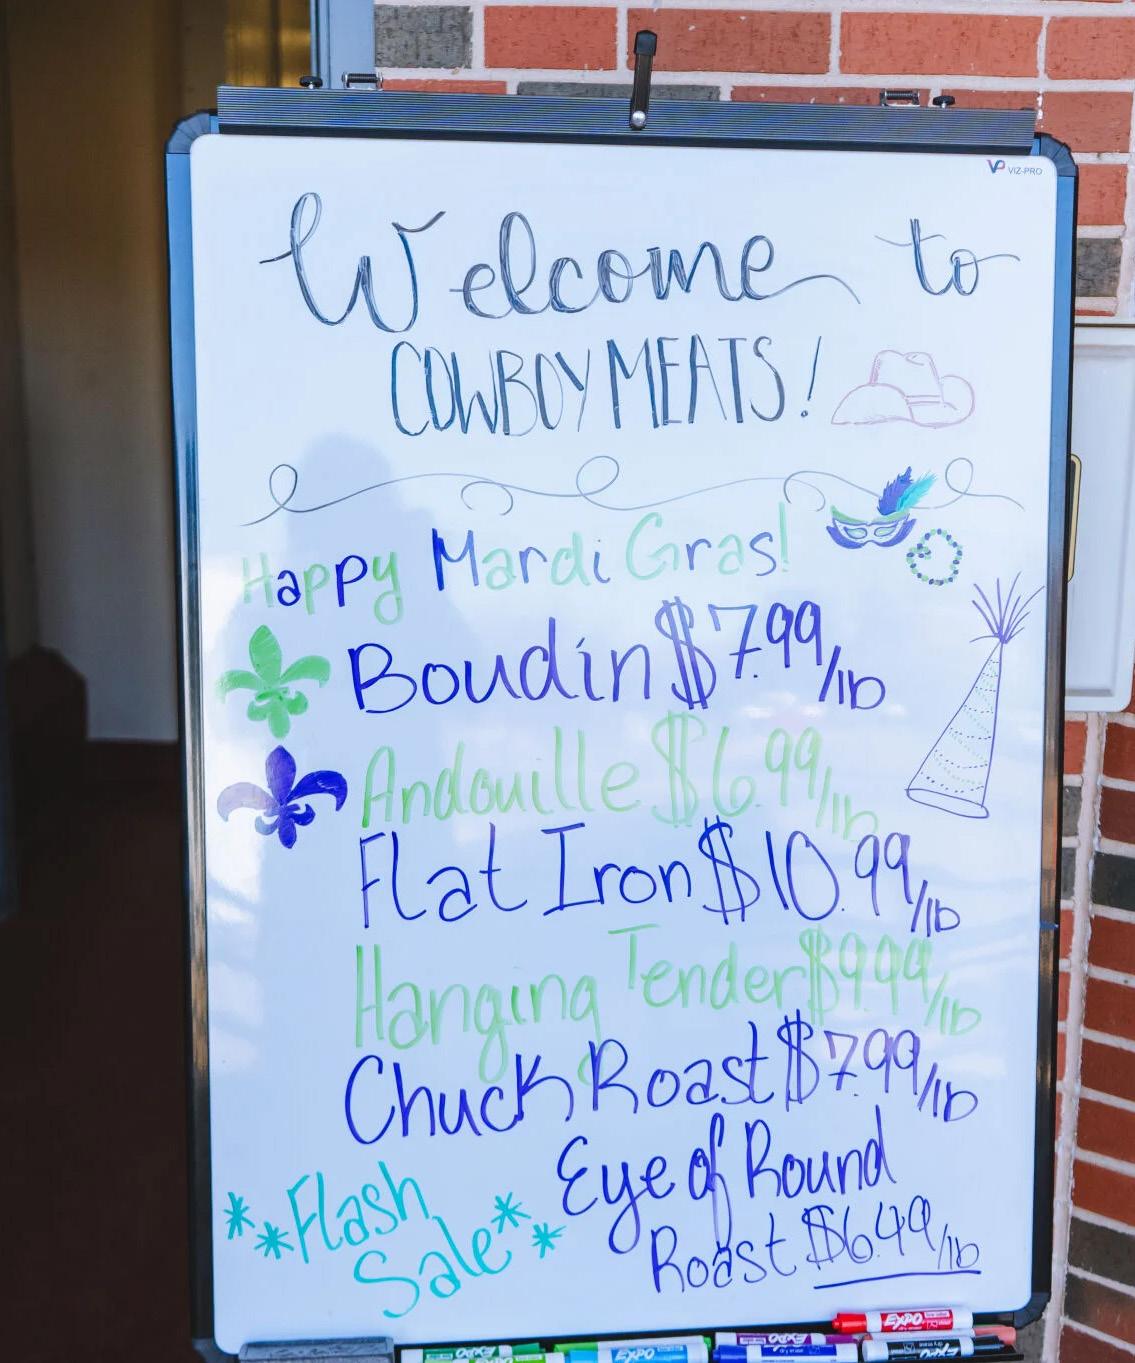 VP VIZ-PRO
Welcome to
COWBOY MEATS!
Happy Mardi Gras!
Boudin $7.99/lb
Andouille $6.99/lb
Flat Iron $10.99/lb
Hanging Tender $9.99/lb
Chuck Roast $7.99/lb
**Flash
Sale**
Eye of Round
Roast $6.49/lb
EXPO
EXPO
EXPO
EXPO
EXPO